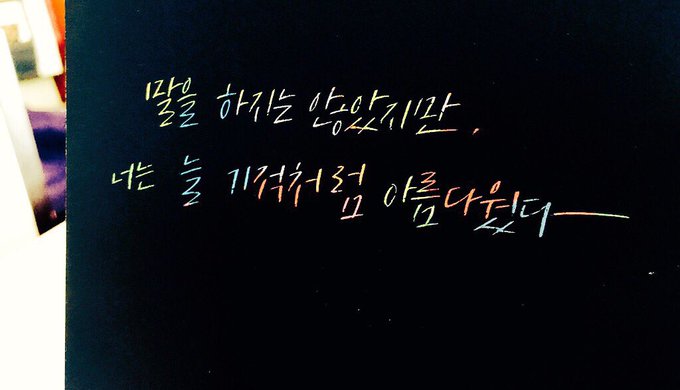 말을 하지는 않았지만,
너는 늘 기적처럼 아름다웠다